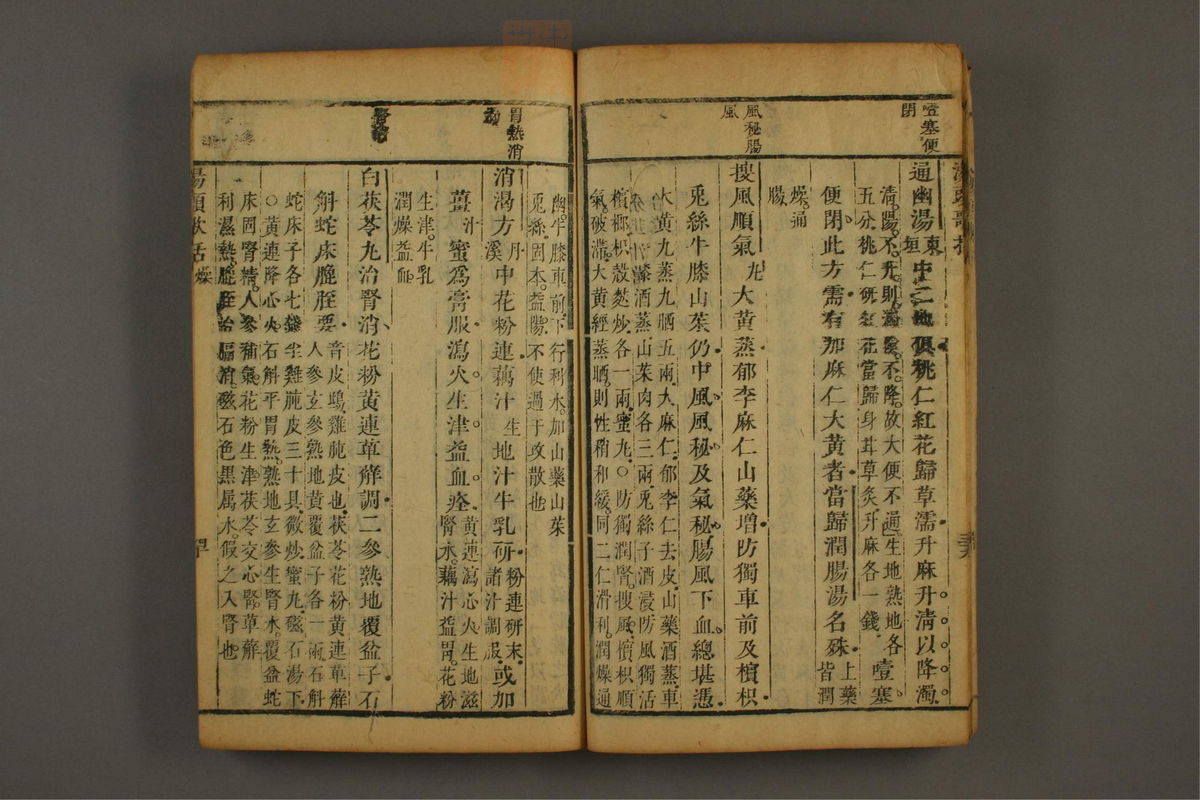 噎塞便
閉
通幽湯東垣中二地俱桃仁紅花歸草濡升麻升清以降濁
清陽不升則濁陰不降故大便不通生地熟地各
五分桃仁研紅花當歸身甘草炙升麻各一錢
噎塞
便閉此方需有加麻仁大黃者當歸潤腸湯名殊
上藥
皆潤
燥通
腸
風秘腸
風
搜風順氣丸大黃蒸郁李麻仁山藥增防獨車前及檳枳
兎絲牛膝山茱仍中風風秘及氣秘腸風下血總堪憑
大黃九蒸九晒五兩大麻仁郁李仁去皮山藥酒蒸車
膝酒蒸山茱肉各三兩兎絲子酒浸防風獨活
檳榔枳殼麩炒各一兩蜜丸○防獨潤腎搜風檳枳順
氣破滯大黃經蒸晒則性稍和緩同二仁滑利潤燥通
幽牛膝車前下行利水加山藥山茱
兎絲固本益陽不使過于攻散也
胃熱消
消渴方丹溪中花粉連藕汁生地汁牛乳研粉連研末諸汁調服或加
薑汁蜜爲膏服瀉火生津益血痊
黃連瀉心火生地滋
腎水藕汁益胃花粉
生津牛乳
潤燥益血
白茯苓丸治腎消花粉黃連萆薢調二參熟地覆盆子石
斛蛇床膍胵要
音皮鴟雞肫皮也茯苓花粉黃連萆薢
人參玄參熟地黃覆盆子各一兩石斛
蛇床子各七錢半雞肫皮三十具微炒蜜丸磁石湯下
○黃連降心火石斛平胃熱熟地玄參生腎水覆盆蛇
床固腎精人參補氣花粉生津茯苓交心腎萆薢
利濕熱膍胵治膈消磁石色黑屬水假之入腎也
湯頭歌括
燥